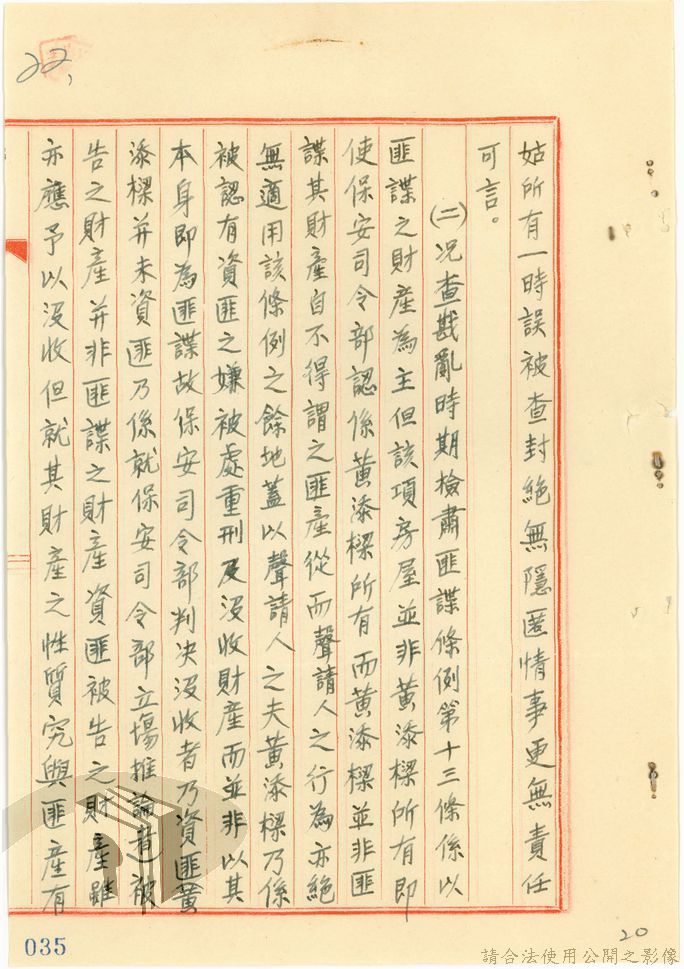 22,
姑所有一時誤被查封絕無隱匿情事更無責任
可言。
(二)况查戡亂時期檢肅匪諜條例第十三條係以
匪諜之財產為主但該項房屋並非黃添樑所有即
使保安司令部認係黃添樑所有而黃添樑並非匪
諜其財產自不得謂之匪產從而聲請人之行為亦絕
無適用該條例之餘地蓋以聲請人之夫黃添樑乃係
被認有資匪之嫌被處重刑及沒收財產而並非以其
本身即為匪諜故保安司令部判決沒收者乃資匪黃
添樑并未資匪乃係就保安司令部立場推論者被
告之財產并非匪諜之財產資匪被告之財產雖
亦應予以沒收但就其財產之性質究與匪產有
035
20
請合法使用公開之影像